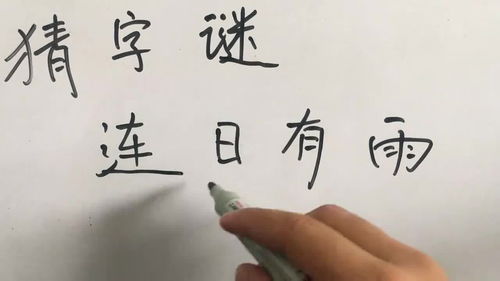 猜字谜
连日有雨